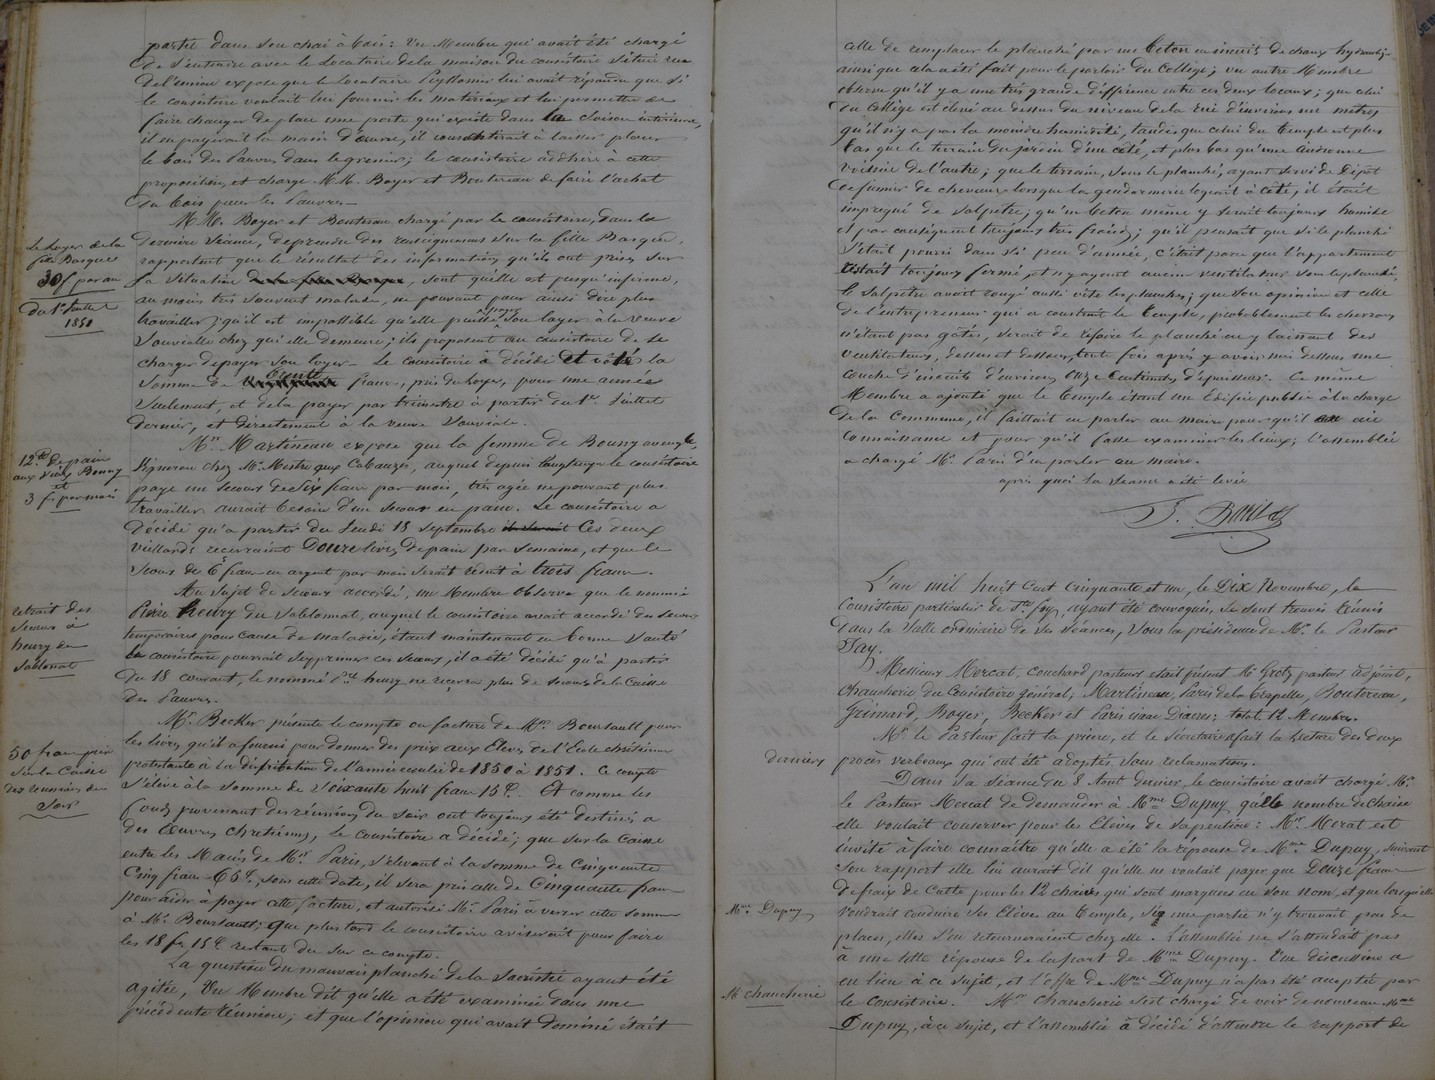 partie dans son chai à bois: Un Membre qui avait été chargé
de s'entendre avec le Locataire de la maison du consistoire située rue
de l'union expose que le locataire lui avait répondu que si
le consistoire voulait lui fournir les matériaux et lui permettre de
faire changer de place une porte qui existe dans la cloison intérieure,
il en payerait la main d'œuvre, il consentirait à laisser placer
le bois des Pauvres dans le grenier; le consistoire adhère à cette
proposition, et charge M.M. Boyer et Boutereau de faire l'achat
du bois pour les Pauvres —
M.M. Boyer et Boutereau chargé par le consistoire, dans la
dernière séance, de prendre des renseignemens sur la fille Basque,
rapportent que le résultat des informations qu'ils ont prises sur
sa situation , sont qu'elle est presqu'infirme,
au moins très souvent malade, ne pouvant pour ainsi dire plus
travailler; qu'il est impossible qu'elle puisse payer son loyer à la veuve
chez qui elle demeure; ils proposent au consistoire de se
charger de payer son loyer — Le consistoire a décidé et voté la
somme de trente francs, prix du loyer, pour une année
seulement, et de la payer par trimestre à partir du 1er Juillet
dernier, et directement à la veuve
Mr. Martineau expose que la femme de Bouny aveugle,
chez Mr. Mestre aux Cabauzes, auquel depuis longtemps le consistoire
paye un secours de six francs par mois, très agée ne pouvant plus
travailler aurait besoin d'un secours en pain. Le consistoire a
décidé qu'a partir du Jeudi 18 septembre ces deux
viellards recevraient Douze livres de pain par semaine, et que le
secours de 6 francs en argent par mois serait réduit à trois francs.
Au sujet de secours accordé, un Membre observe que le nommé
Pierre heury du Sablonat, auquel le consistoire avait accordé des secours
temporaires pour cause de maladie, étant maintenant en bonne santé
le consistoire pourrait supprimer ces secours, il a été décidé qu'à partir
du 18 courant, le nommé Pre heury ne recevra plus de secours de la Caisse
des Pauvres.
Mr. Becker présente le compte ou facture de Mr. Boursault pour
les livres qu'il a fourni pour donner des prix aux Eleves de l'Ecole chrétienne
protestante à la distribution de l'année scolaire de 1850 à 1851. Ce compte
s'élève à la somme de soixante huit francs 15c. Et comme les
fonds provenant des réunions du soir ont toujours été destinés a
des Œuvres chretiennes, Le consistoire a décidé; que sur la caisse
entre les Mains de Mr. Paris, s'elevant à la somme de Cinquante
Cinq francs 65c, sous cette date, il sera pris celle de Cinquante francs
pour aider à payer cette facture, et autorise Mr. Paris à verser cette somme
à Mr. Boursault; que plus tard le consistoire aviserait pour faire
les 18 fr. 15c restant du sur ce compte.
La question du mauvais planché de la sacristie ayant été
agitée, Un Membre dit qu'elle a été examinée dans une
précédente réunion; et que l'opinion qui avait dominé était
Le loyer de la
fille Basque
30 f par an
du 1er Juillet
1851
12 de pain
aux vieux Bouny
et
3 f. par mois
retrait des
secours à
heury du
Sablonat
50 francs pris
sur la Caisse
des réunions du
Soir
celle de remplacer le planché par un beton en
ainsi que cela a été fait pour le parloir du Collège; un autre Membre
observe qu'il y a une très grande différence entre ces deux locaux; que celui
du Collège est élevé au dessus du niveau de la rue d'environ un mètre,
qu'il n'y a pas la moindre humidité, tandis que celui du Temple est plus
bas que le terrain du jardin d'un côté, et plus bas qu'une androne
voisine de l'autre; que le terrain, sous le planché, ayant servi de Dépôt
de fumier de chevaux lorsque la gendarmerie logeait à côté, il était
impregné de salpetre; qu'un beton même y serait toujours humide
et par consequent toujours très froid; qu'il pensait que si le planché
s'était pourri dans si peu d'année, c'était parce que l'appartement
était toujours fermé, et n'y ayant aucun ventilateur sous le planché,
le salpetre avait rongé aussi vite les planches; que son opinion et celle
de l'entrepreneur qui a construit le Temple, probablement les chevrons
n'étant pas gâtés, serait de refaire le planché en y laissant des
ventilateurs, dessus et dessous, toute fois après y avoir mis dessous une
couche d'environ onze centimètres d'épaisseur. Ce même
Membre a ajouté que le Temple étant un Edifice public à la charge
de la Commune, il faillait en parler au maire pour qu'il en aie
connaissance et pour qu'il fasse examiner les lieux; l'assemblée
a chargé Mr. Paris d'en parler au maire.
après quoi la séance a été levée
L'an mil huit Cent Cinquante et un, le Dix Novembre, le
Consistoire particulier de Ste foy, ayant été convoqué, se sont trouvés réunis
dans la salle ordinaire de ses séances, sous la présidence de Mr. le Pasteur
Say.
Messieurs Mercat, couchard pasteurs était présent Mr Grotz pasteur adjoint,
Chaucherie, du Consistoire général; Martineau, Paris de la Chapelle, Boutereau,
Grimard, Boyer, Becker et Paris isaac Diacres: total 12 Membres.
Mr. le Pasteur fait la prière, et le secrétaire a fait la lecture des deux
derniers procès verbeaux qui ont été adoptés sans réclamations.
Dans sa séance du 8 aout dernier, le consistoire avait chargé Mr.
le Pasteur Mercat de demander à Mme Dupuy quelle nombre de chaise
elle voulait conserver pour les Elèves de sa pension: Mr. Mercat est
invité à faire connaitre qu'elle a été la réponse de Mme Dupuy, suivant
son rapport elle lui aurait dit qu'elle ne voulait payer que Douze francs
de prix de cette pour les 12 chaises, qui sont marquées en son nom, et que lorsqu'elle
voudrait conduire ses Elèves au Temple, si une partie n'y trouvait pas de
places, elles s'en retourneraient chez elle. L'assemblée ne s'attendait pas
à une telle réponse de la part de Mme Dupuy. Une discussion a
eu lieu à ce sujet, et l'offre de Mme Dupuy n'a pas été acceptée par
le Consistoire. Mr. Chaucherie s'est chargé de voir de nouveau Mme
Dupuy, à ce sujet, et l'assemblée a décidé d'attendre le rapport de
Mme Dupuy
M. chaucherie